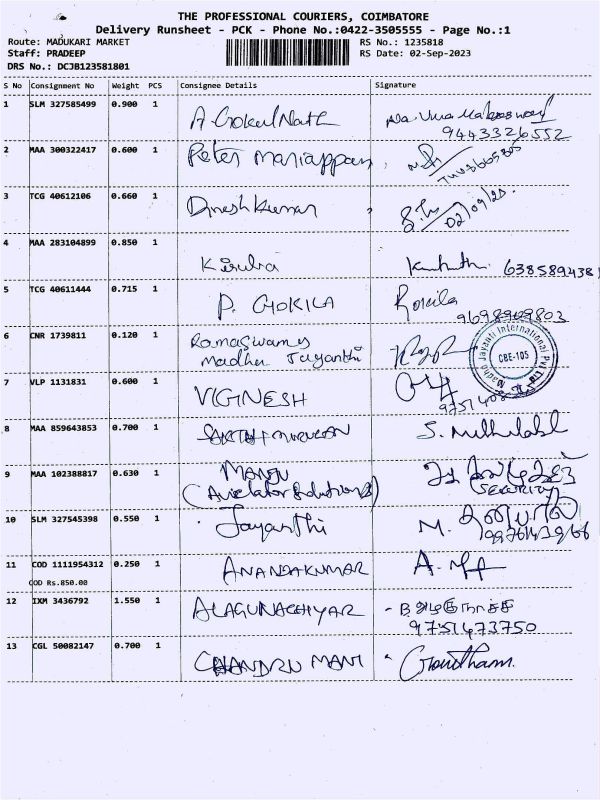 THE PROFESSIONAL COURIERS, COIMBATORE
Delivery Runsheet - PCK - Phone No.:0422-3505555 - Page No.:1
Route: MADUKARI MARKET
Staff: PRADEEP
DRS No.: DCJB123581801
RS No.: 1235818
RS Date: 02-Sep-2023
S No Consignment No Weight PCS Consignee Details Signature
1 SLM 327585499 0.900 1 A Gokul Nath
9443326552
2 MAA 300322417 0.600 1 Peter Mariappan
3 TCG 40612106 0.660 1 Dinesh Kumar
02/09/23.
4 MAA 283104899 0.850 1 638589438
5 TCG 40611444 0.715 1 P. GOKILA Gokila
9698909803
6 CNR 1739811 0.120 1 Ramaswamy
Madhu Jayanthi
Madhu Jayanti International Pvt Ltd
CBE-105
7 VLP 1131831 0.600 1 VIGINESH
8 MAA 859643853 0.700 1 SAKTHI MURUGAN
9 MAA 102388817 0.630 1 MANJU
SECURITY
10 SLM 327545398 0.550 1 Jayanthi M.
11 COD 1111954312 0.250 1 ANANDAKUMAR
COD Rs.850.00
12 IXM 3436792 1.550 1 ALAGUNACHIYAR
9751473750
13 CGL 50082147 0.700 1 CHANDRU MANI Gowtham.